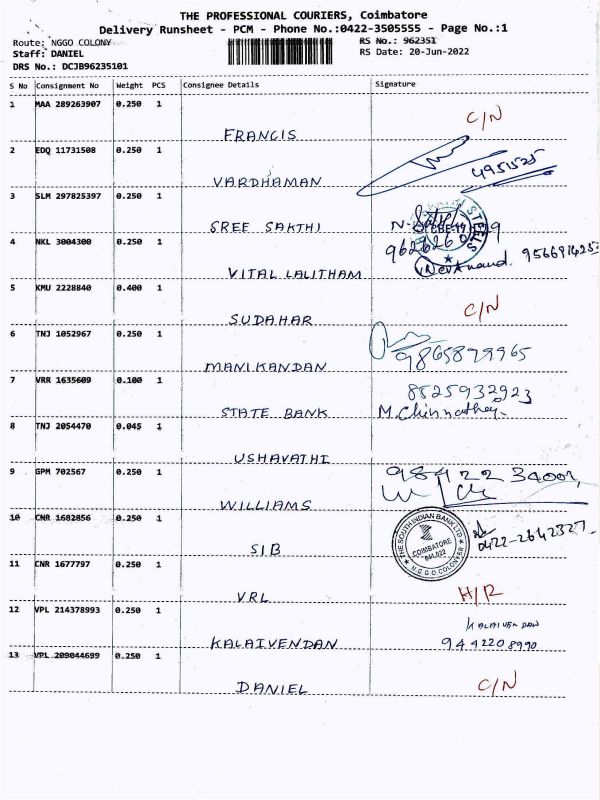 THE PROFESSIONAL COURIERS, Coimbatore
Delivery Runsheet - PCM - Phone No.:0422-3505555 - Page No.:1
Route: NGGO COLONY RS No.: 962351
Staff: DANIEL RS Date: 20-Jun-2022
DRS No.: DCJB96235101
S No Consignment No Weight PCS Consignee Details Signature
1 MAA 289263907 0.250 1
FRANCIS C/N
2 EDQ 11731508 0.250 1
VARDHAMAN 4951525
3 SLM 297825397 0.250 1
SREE SAKTHI
STEELS
4 NKL 3004300 0.250 1
VITAL LALITHAM
5 KMU 2228840 0.400 1
SUDAHAR C/N
6 TNJ 1052967 0.250 1
MANIKANDAN 9865879965
7 VRR 1635609 0.100 1 8525932923
STATE BANK M.Chinnathay
8 TNJ 2054470 0.045 1
USHAVATHI
9 GPM 702567 0.250 1
WILLIAMS
10 CNR 1682856 0.250 1
THE SOUTH INDIAN BANK LTD
COIMBATORE
641 022
N.G.G.O COLONY BR
SIB 0422-2642327
11 CNR 1677797 0.250 1
VRL H/R
12 VPL 214378993 0.250 1 KALAIVENDAN
KALAIVENDAN 9442208990
13 VPL 209044699 0.250 1
DANIEL C/N